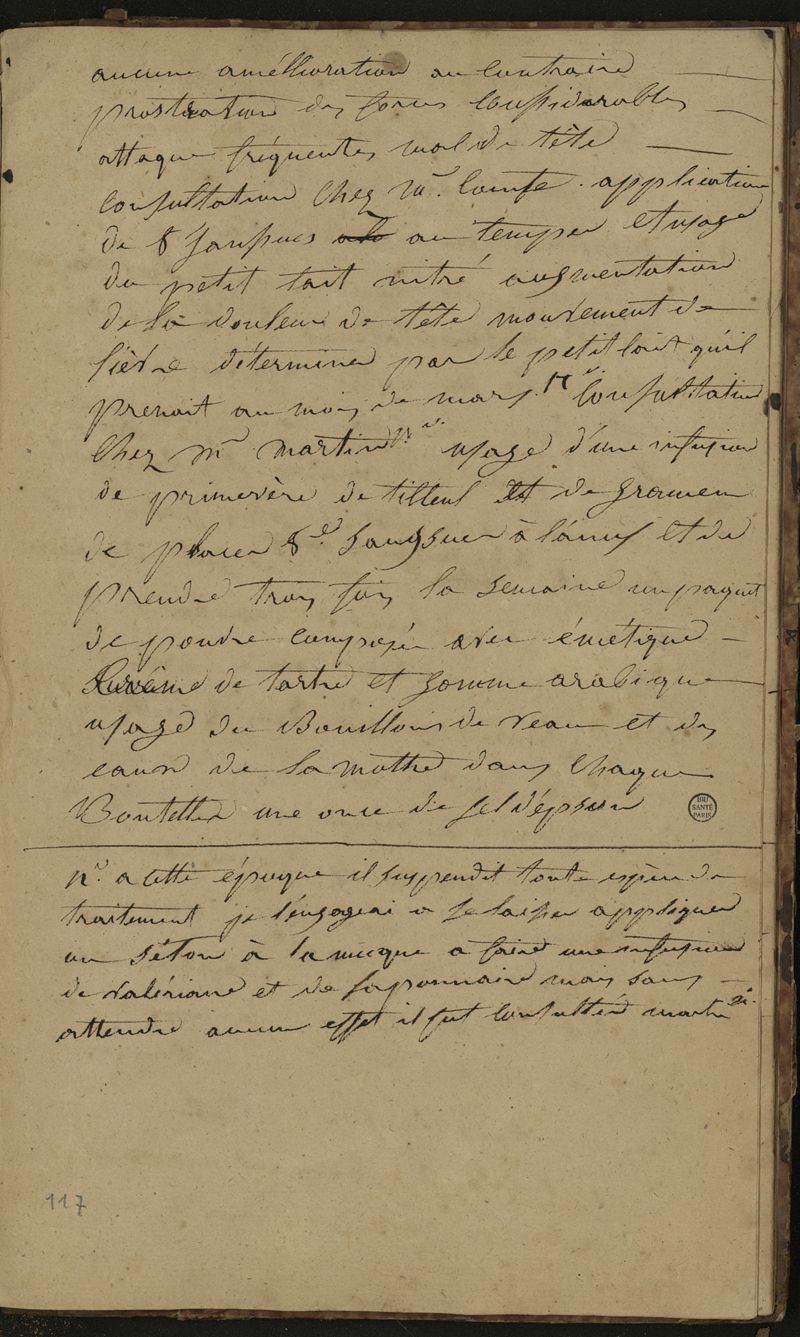 aucune amélliorations au contraire
prostration des forces considerables
attaque fréquentes mal de tête
consultation chez Mr. Comte. application
de 8 sansues au temper et usage
du petit lait nitré augmentation
de la douleur de tête mouvement de
fièvre déterminer par le petit lait qu'il
prenoit au mois de mars. consultation
chez Mr martin usage d'une infusion
de primevère de tilleul et de gramen
de placer 8 sangsues à l'anus et de
prendre trois fois la semaine un paquet
de poudre composée avec émétique
crême de tartre et gomme arabique
usage du Bouillons de veau et des
eaux de la mothe dans chaque
Bouteille une once de sel d'epsum
nª a cette époque il suspendit toute espèce de
traitement je l'engageai a se laisser appliquer
un séton à la nucque a faire une infusion
de valériane et de saponnaire mais sans
attendre aucun effet il fut consulter martin
117
BIU
SANTÉ
PARIS